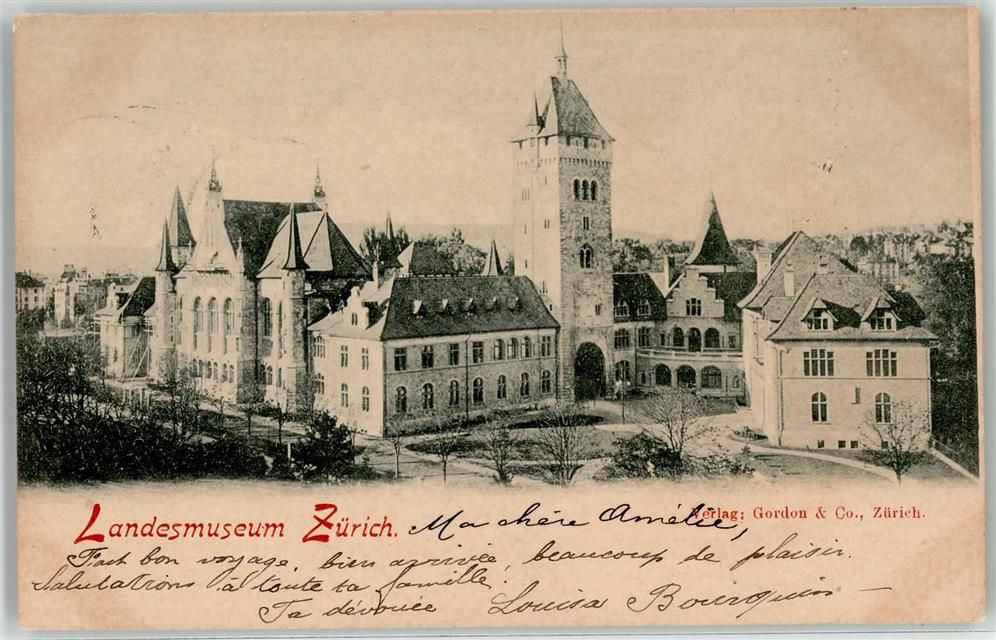 Landesmuseum Zürich.
Verlag: Gordon & Co., Zürich.
Ma chère Amélie,
Fait bon voyage, bien arrivée, beaucoup de plaisir.
Salutations à toute ta famille.
Ta dévouée Louisa Bourquin